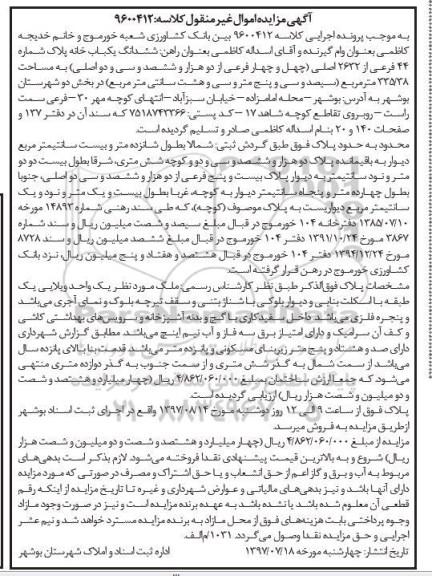 آگهی مزایده اموال غیر منقول کلاسه: ۹۶۰۰۴۱۲
به موجب پرونده اجرایی کلاسه ۹۶۰۰۴۱۲ بین بانک کشاورزی شعبه خورموج و خانم خدیجه
کاظمی بعنوان وام گیرنده و آقای اسداله کاظمی بعنوان راهن: ششدانگ یکباب خانه پلاک شماره
۴۴ فرعی از ۲۶۳۲ اصلی (چهل و چهار فرعی از دو هزار و ششصد و سی و دو اصلی) به مساحت
۳۳۵/۳۸ مترمربع (سیصد و سی و پنج متر و سی و هشت سانتی متر مربع) در بخش دو شهرستان
بوشهر به آدرس: بوشهر – محله امامزاده – خیابان سبزآباد – انتهای کوچه مهر ۳۰ – فرعی سمت
راست – روبروی تقاطع کوچه شاهد ۱۷ – کد پستی: ۷۵۱۸۷۴۳۳۶۶ که سند آن در دفتر ۱۳۷ و
صفحات ۱۴۰ و ۲۰ بنام اسداله کاظمی صادر و تسلیم گردیده است.
محدود به حدود پلاک فوق طبق گردش ثبتی: شمالا بطول شانزده متر و بیست سانتیمتر مربع
دیوار به باقیمانده پلاک دو هزار و ششصد و سی و دو و کوچه شش متری، شرقا بطول بیست دو
متر و نود سانتیمتر به دیوار پلاک بیست و پنج فرعی از دو هزار و ششصد و سی دو اصلی، جنوبا
بطول چهارده متر و پنجاه سانتیمتر دیوار به کوچه، غربا بطول بیست و یک متر و نود و یک
سانتیمتر مربع دیواریست به پلاک موصوف (کوچه)، که طی سند رهنی شماره ۱۴۸۹۳ مورخه
۱۳۸۵/۰۷/۱۰ دفترخانه ۱۰۴ خورموج در قبال مبلغ سیصد و شصت میلیون ریال و سند شماره
۳۸۶۷ مورخ ۱۳۹۱/۱۰/۲۴ دفتر ۱۰۴ خورموج در قبال مبلغ ششصد میلیون ریال و سند ۸۷۲۸
مورخ ۱۳۹۴/۱۲/۲۴ دفتر ۱۰۴ خورموج در قبال هشتصد و هفتاد و پنج میلیون ریال، نزد بانک
کشاورزی خورموج در رهن قرار گرفته است.
مشخصات پلاک فوق الذکر طبق نظر کارشناس رسمی: ملک مورد نظر یک واحد ویلایی یک
طبقه با اسکلت بنایی و دیوار بلوکی با شناژ بتنی و سقف تیرچه بلوک و نمای آجری می باشد
و پنجره فلزی می باشد داخل سفیدکاری با گچ و بدنه آشپزخانه و سرویس های بهداشتی کاشی
و کف آن سرامیک و دارای امتیاز برق سه فاز و آب نیم اینچ می باشد. مطابق گزارش شهرداری
دارای صد و هشتاد و پنج متر زیربنای مسکونی و پانزده متر می باشد. قدمت بنا بالای پانزده سال
می باشد از سمت شمال به گذر شش متری و از سمت جنوب به گذر دوازده متری منتهی
می شود که جمعا ارزش ساختمان بمبلغ ۴/۸۶۲/۰۶۰/۰۰۰ ریال (چهار میلیارد و هشتصد و شصت
و دو میلیون و شصت هزار ریال) ارزیابی گردیده است.
پلاک فوق از ساعت ۹ الی ۱۲ روز دوشنبه مورخ ۱۳۹۷/۰۸/۱۴ واقع در اجرای ثبت اسناد بوشهر
از طریق مزایده به فروش میرسد.
مزایده از مبلغ ۴/۸۶۲/۰۶۰/۰۰۰ ریال (چهار میلیارد و هشتصد و شصت و دو میلیون و شصت هزار
ریال) شروع و به بالاترین قیمت پیشنهادی نقدا فروخته می شود. لازم بذکر است بدهی های
مربوط به آب و برق و گاز اعم از حق انشعاب و یا حق اشتراک و مصرف در صورتی که مورد مزایده
دارای آنها باشد و نیز بدهی های مالیاتی و عوارض شهرداری و غیره تا تاریخ مزایده از اینکه رقم
قطعی آن معلوم شده باشد یا نشده باشد به عهده برنده مزایده است و نیز در صورت وجود مازاد
وجوه پرداختی بابت هزینه های فوق از محل مازاد به برنده مزایده مسترد خواهد شد و نیم عشر
اجرایی و حق مزایده نقدا وصول می گردد. ۱۰۳۱/م الف.
تاریخ انتشار: چهارشنبه مورخه ۱۳۹۷/۰۷/۱۸ اداره ثبت اسناد و املاک شهرستان بوشهر